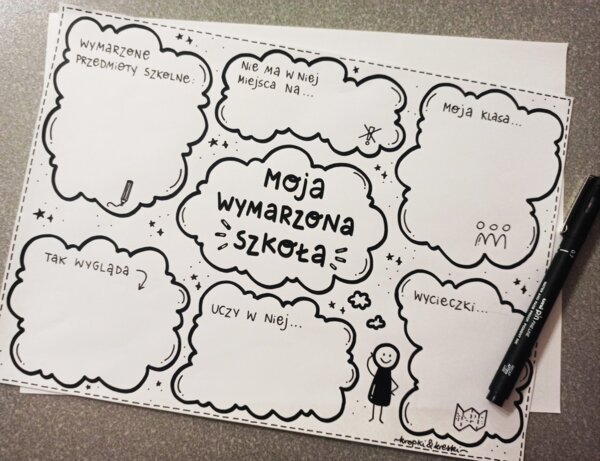 WYMARZONE
PRZEDMIOTY SZKOLNE:
NIE MA W NIEJ
MIEJSCA NA...
MOJA KLASA...
MOJA
WYMARZONA
SZKOŁA
TAK WYGLĄDA
UCZY W NIEJ...
WYCIECZKI...
~kropki&kreski~
uni pin FINE LINE